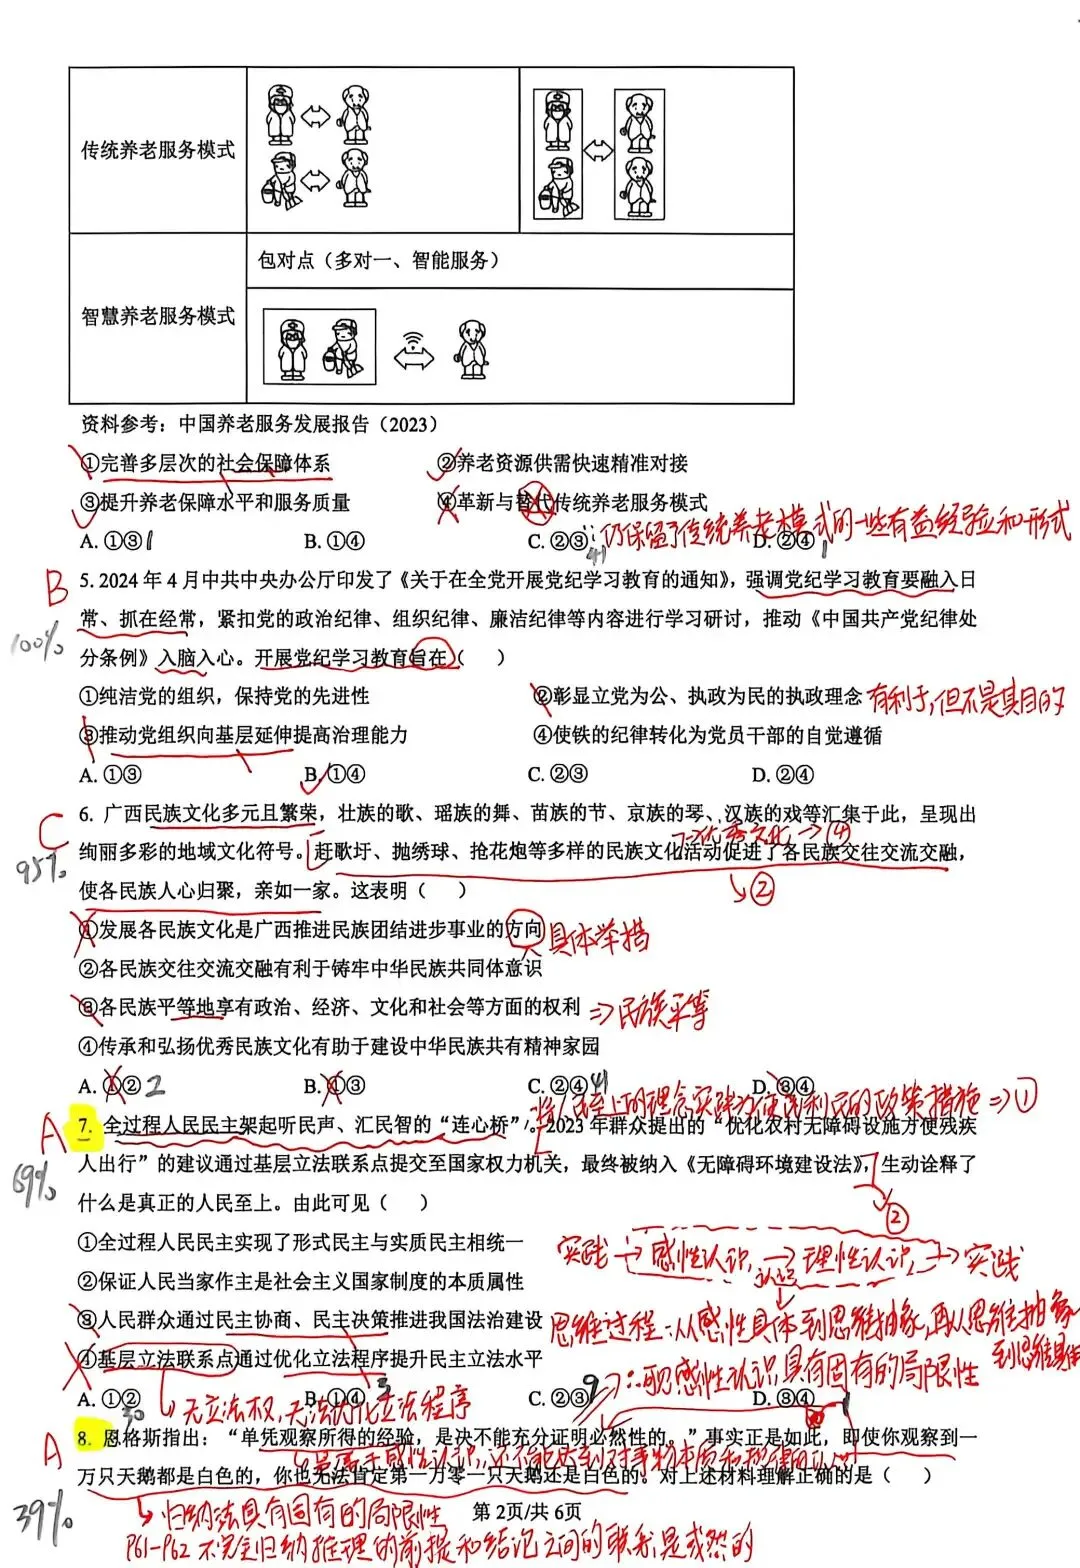 传统养老服务模式
包对点（多对一、智能服务）
智慧养老服务模式
资料参考：中国养老服务发展报告（2023）
①完善多层次的社会保障体系 ②养老资源供需快速精准对接
③提升养老保障水平和服务质量 ④革新与替代传统养老服务模式
仍保留了传统养老模式的一些有益经验和形式
A. ①③ 1 B. ①④ C. ②③ 41 D. ②④ 1
B 5. 2024 年 4 月中共中央办公厅印发了《关于在全党开展党纪学习教育的通知》，强调党纪学习教育要融入日
常、抓在经常，紧扣党的政治纪律、组织纪律、廉洁纪律等内容进行学习研讨，推动《中国共产党纪律处
100%
分条例》入脑入心。开展党纪学习教育旨在（ ）
①纯洁党的组织，保持党的先进性 ②彰显立党为公、执政为民的执政理念 有利于，但不是其目的
③推动党组织向基层延伸提高治理能力 ④使铁的纪律转化为党员干部的自觉遵循
A. ①③ B. ①④ C. ②③ D. ②④
C 6. 广西民族文化多元且繁荣，壮族的歌、瑶族的舞、苗族的节、京族的琴、汉族的戏等汇集于此，呈现出
优秀文化→④
95%
绚丽多彩的地域文化符号。赶歌圩、抛绣球、抢花炮等多样的民族文化活动促进了各民族交往交流交融，
使各民族人心归聚，亲如一家。这表明（ ） ②
①发展各民族文化是广西推进民族团结进步事业的方向 具体举措
②各民族交往交流交融有利于铸牢中华民族共同体意识
③各民族平等地享有政治、经济、文化和社会等方面的权利 ⇒民族平等
④传承和弘扬优秀民族文化有助于建设中华民族共有精神家园
A. ①② 2 B. ①③ C. ②④ 41 D. ③④
将人民至上的理念实践为便民利民的政策措施⇒①
A 7. 全过程人民民主架起听民声、汇民智的“连心桥”。2023 年群众提出的“优化农村无障碍设施方便残疾
69%
人出行”的建议通过基层立法联系点提交至国家权力机关，最终被纳入《无障碍环境建设法》，生动诠释了
什么是真正的人民至上。由此可见（ ） ②
①全过程人民民主实现了形式民主与实质民主相统一
实践→感性认识→理性认识→实践
认识
②保证人民当家作主是社会主义国家制度的本质属性
③人民群众通过民主协商、民主决策推进我国法治建设
思维过程：从感性具体到思维抽象，再从思维抽象
到思维具体
④基层立法联系点通过优化立法程序提升民主立法水平
∴感性认识具有固有的局限性
A. ①② 30 B. ①④ 3 C. ②③ 9 D. ③④ 1
无立法权，无法优化立法程序
A 8. 恩格斯指出：“单凭观察所得的经验，是决不能充分证明必然性的。”事实正是如此，即使你观察到一
万只天鹅都是白色的，你也无法肯定第一万零一只天鹅还是白色的。对上述材料理解正确的是（ ）
39%
归纳法具有固有的局限性
第 2页/共 6页
P61-P62 不完全归纳推理的前提和结论之间的联系是或然的